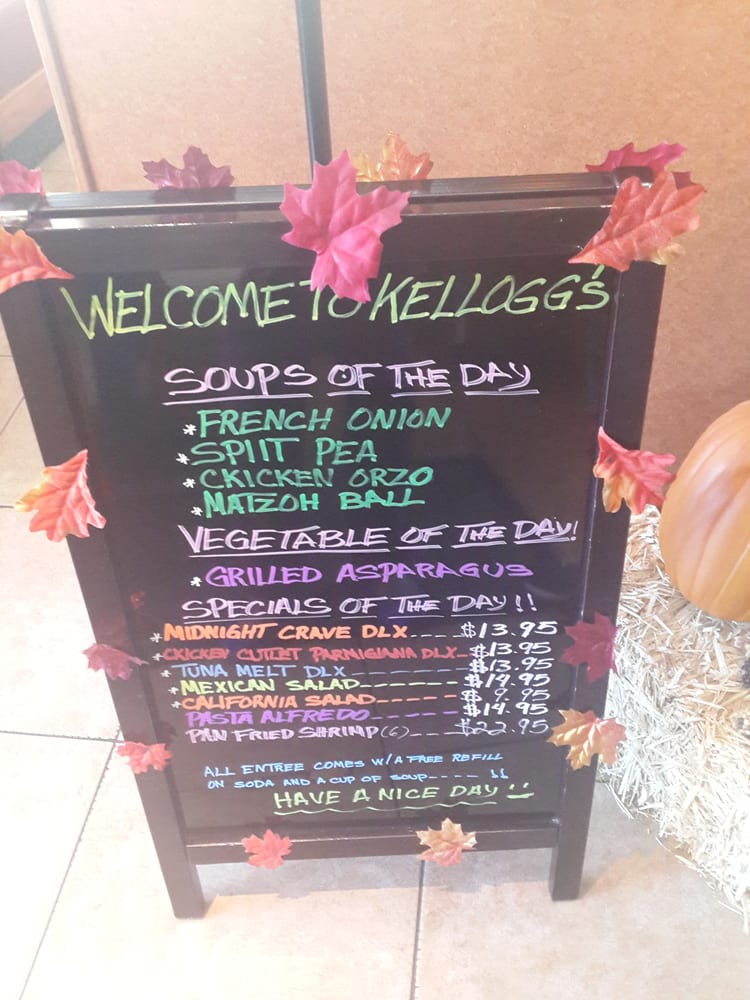 WELCOME TO KELLOGG'S
SOUPS OF THE DAY
*FRENCH ONION
*SPIIT PEA
*CKICKEN ORZO
*MATZOH BALL
VEGETABLE OF THE DAY!
*GRILLED ASPARAGUS
SPECIALS OF THE DAY!!
*MIDNIGHT CRAVE DLX----$13.95
*CKICKEN CUTLET PARMIGIANA DLX--$13.95
*TUNA MELT DLX--------$13.95
*MEXICAN SALAD-------$14.95
*CALIFORNIA SALAD-----$ 9.95
PASTA ALFREDO------$14.95
PAN FRIED SHRIMP(6)----$22.95
ALL ENTREE COMES W/A FREE REFILL
ON SODA AND A CUP OF SOUP----- !!
HAVE A NICE DAY!!